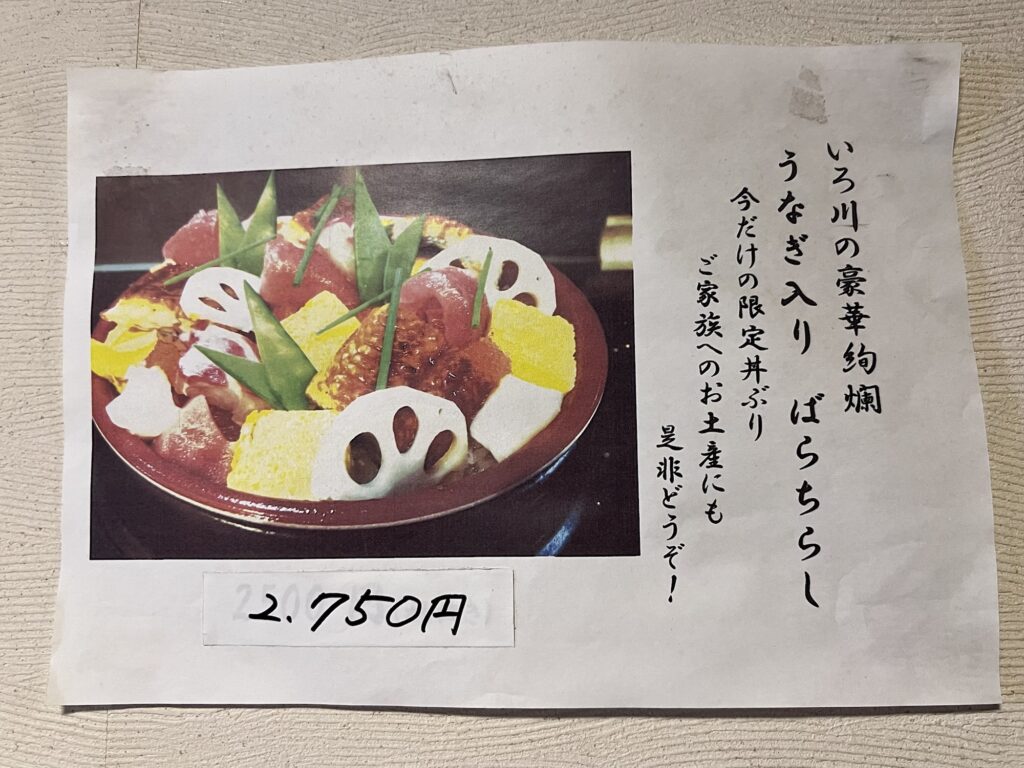 いろ川の豪華絢爛
うなぎ入り ばらちらし
今だけの限定丼ぶり
ご家族へのお土産にも
是非どうぞ!
2.750円